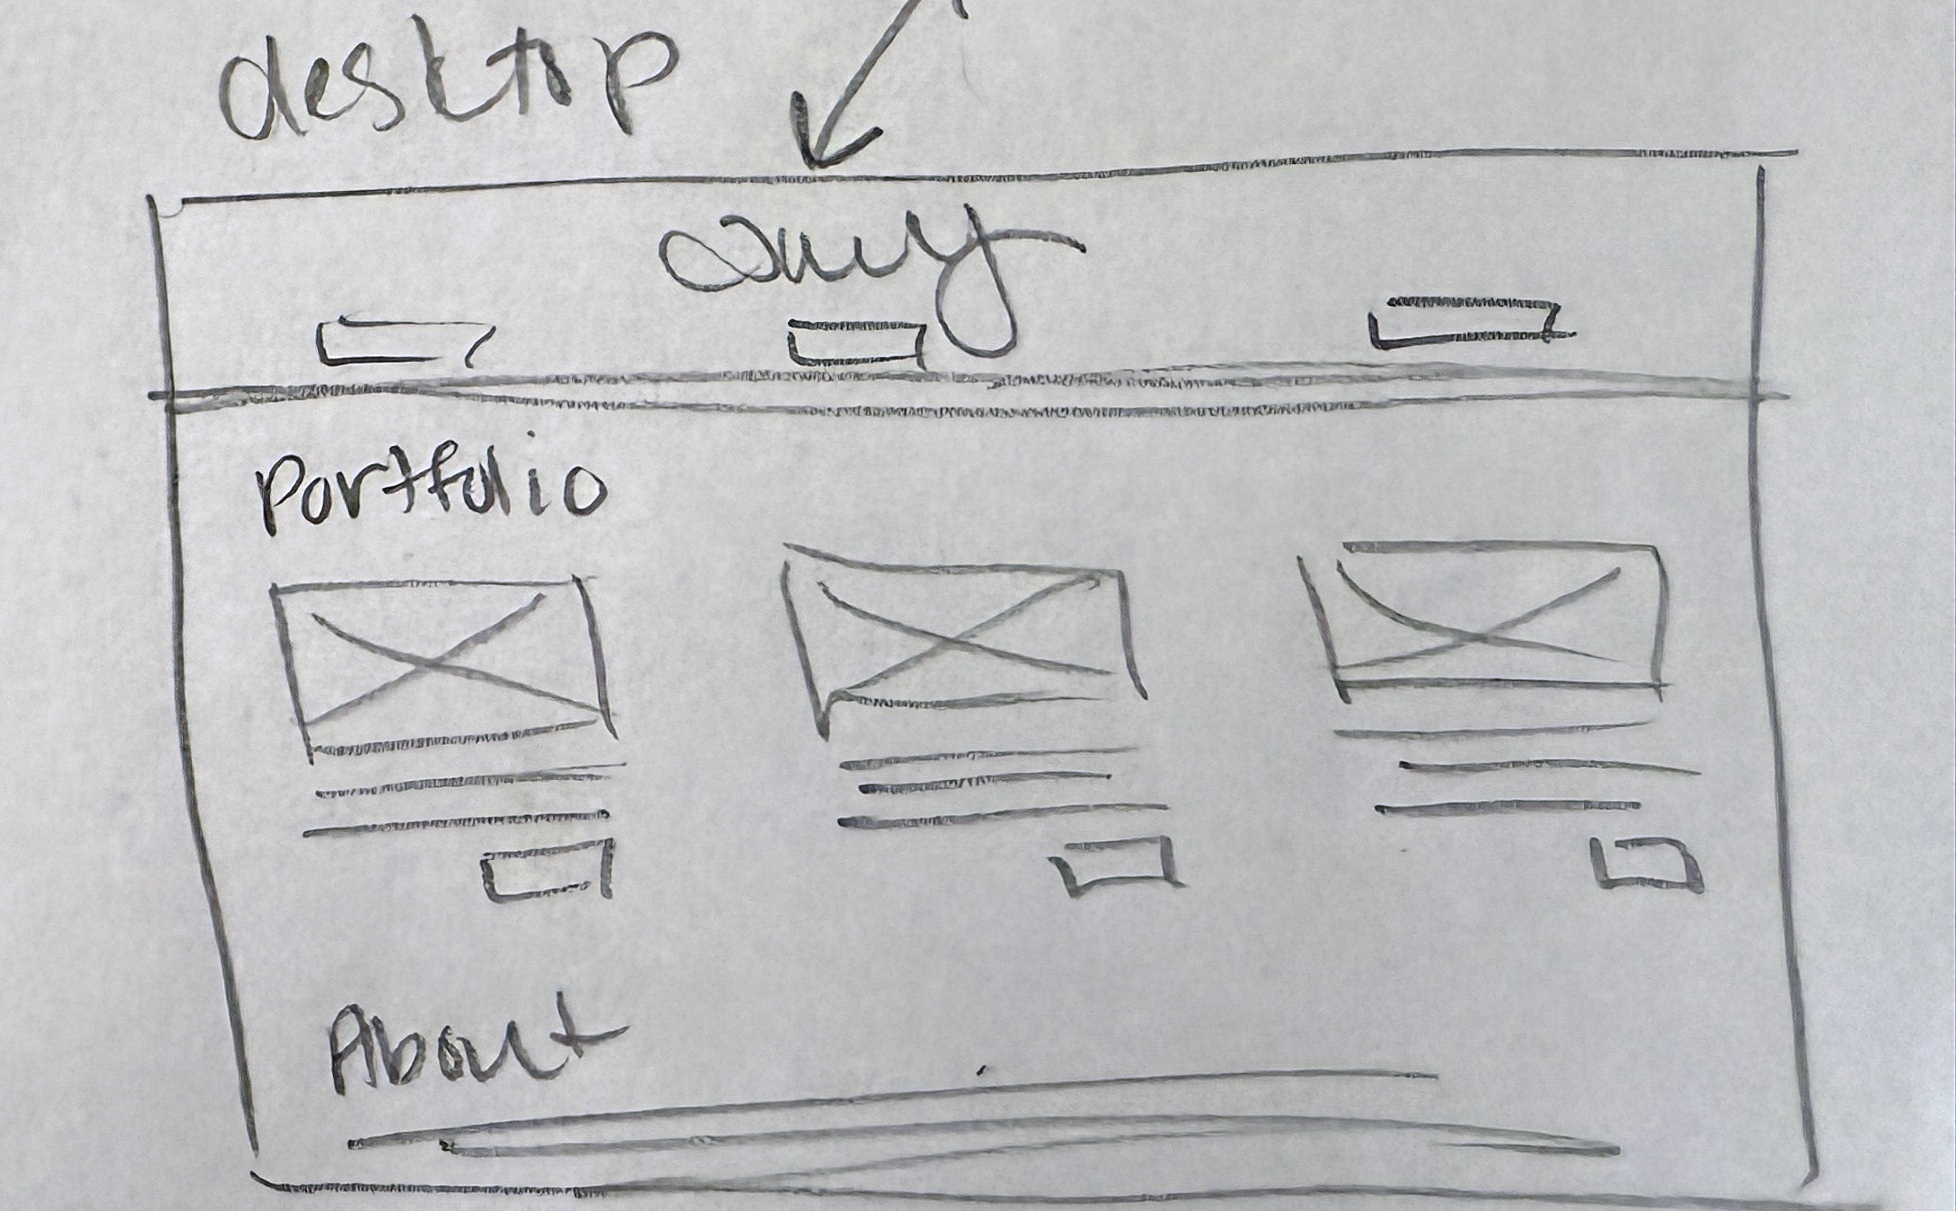 desktop
Amy
Portfolio
About